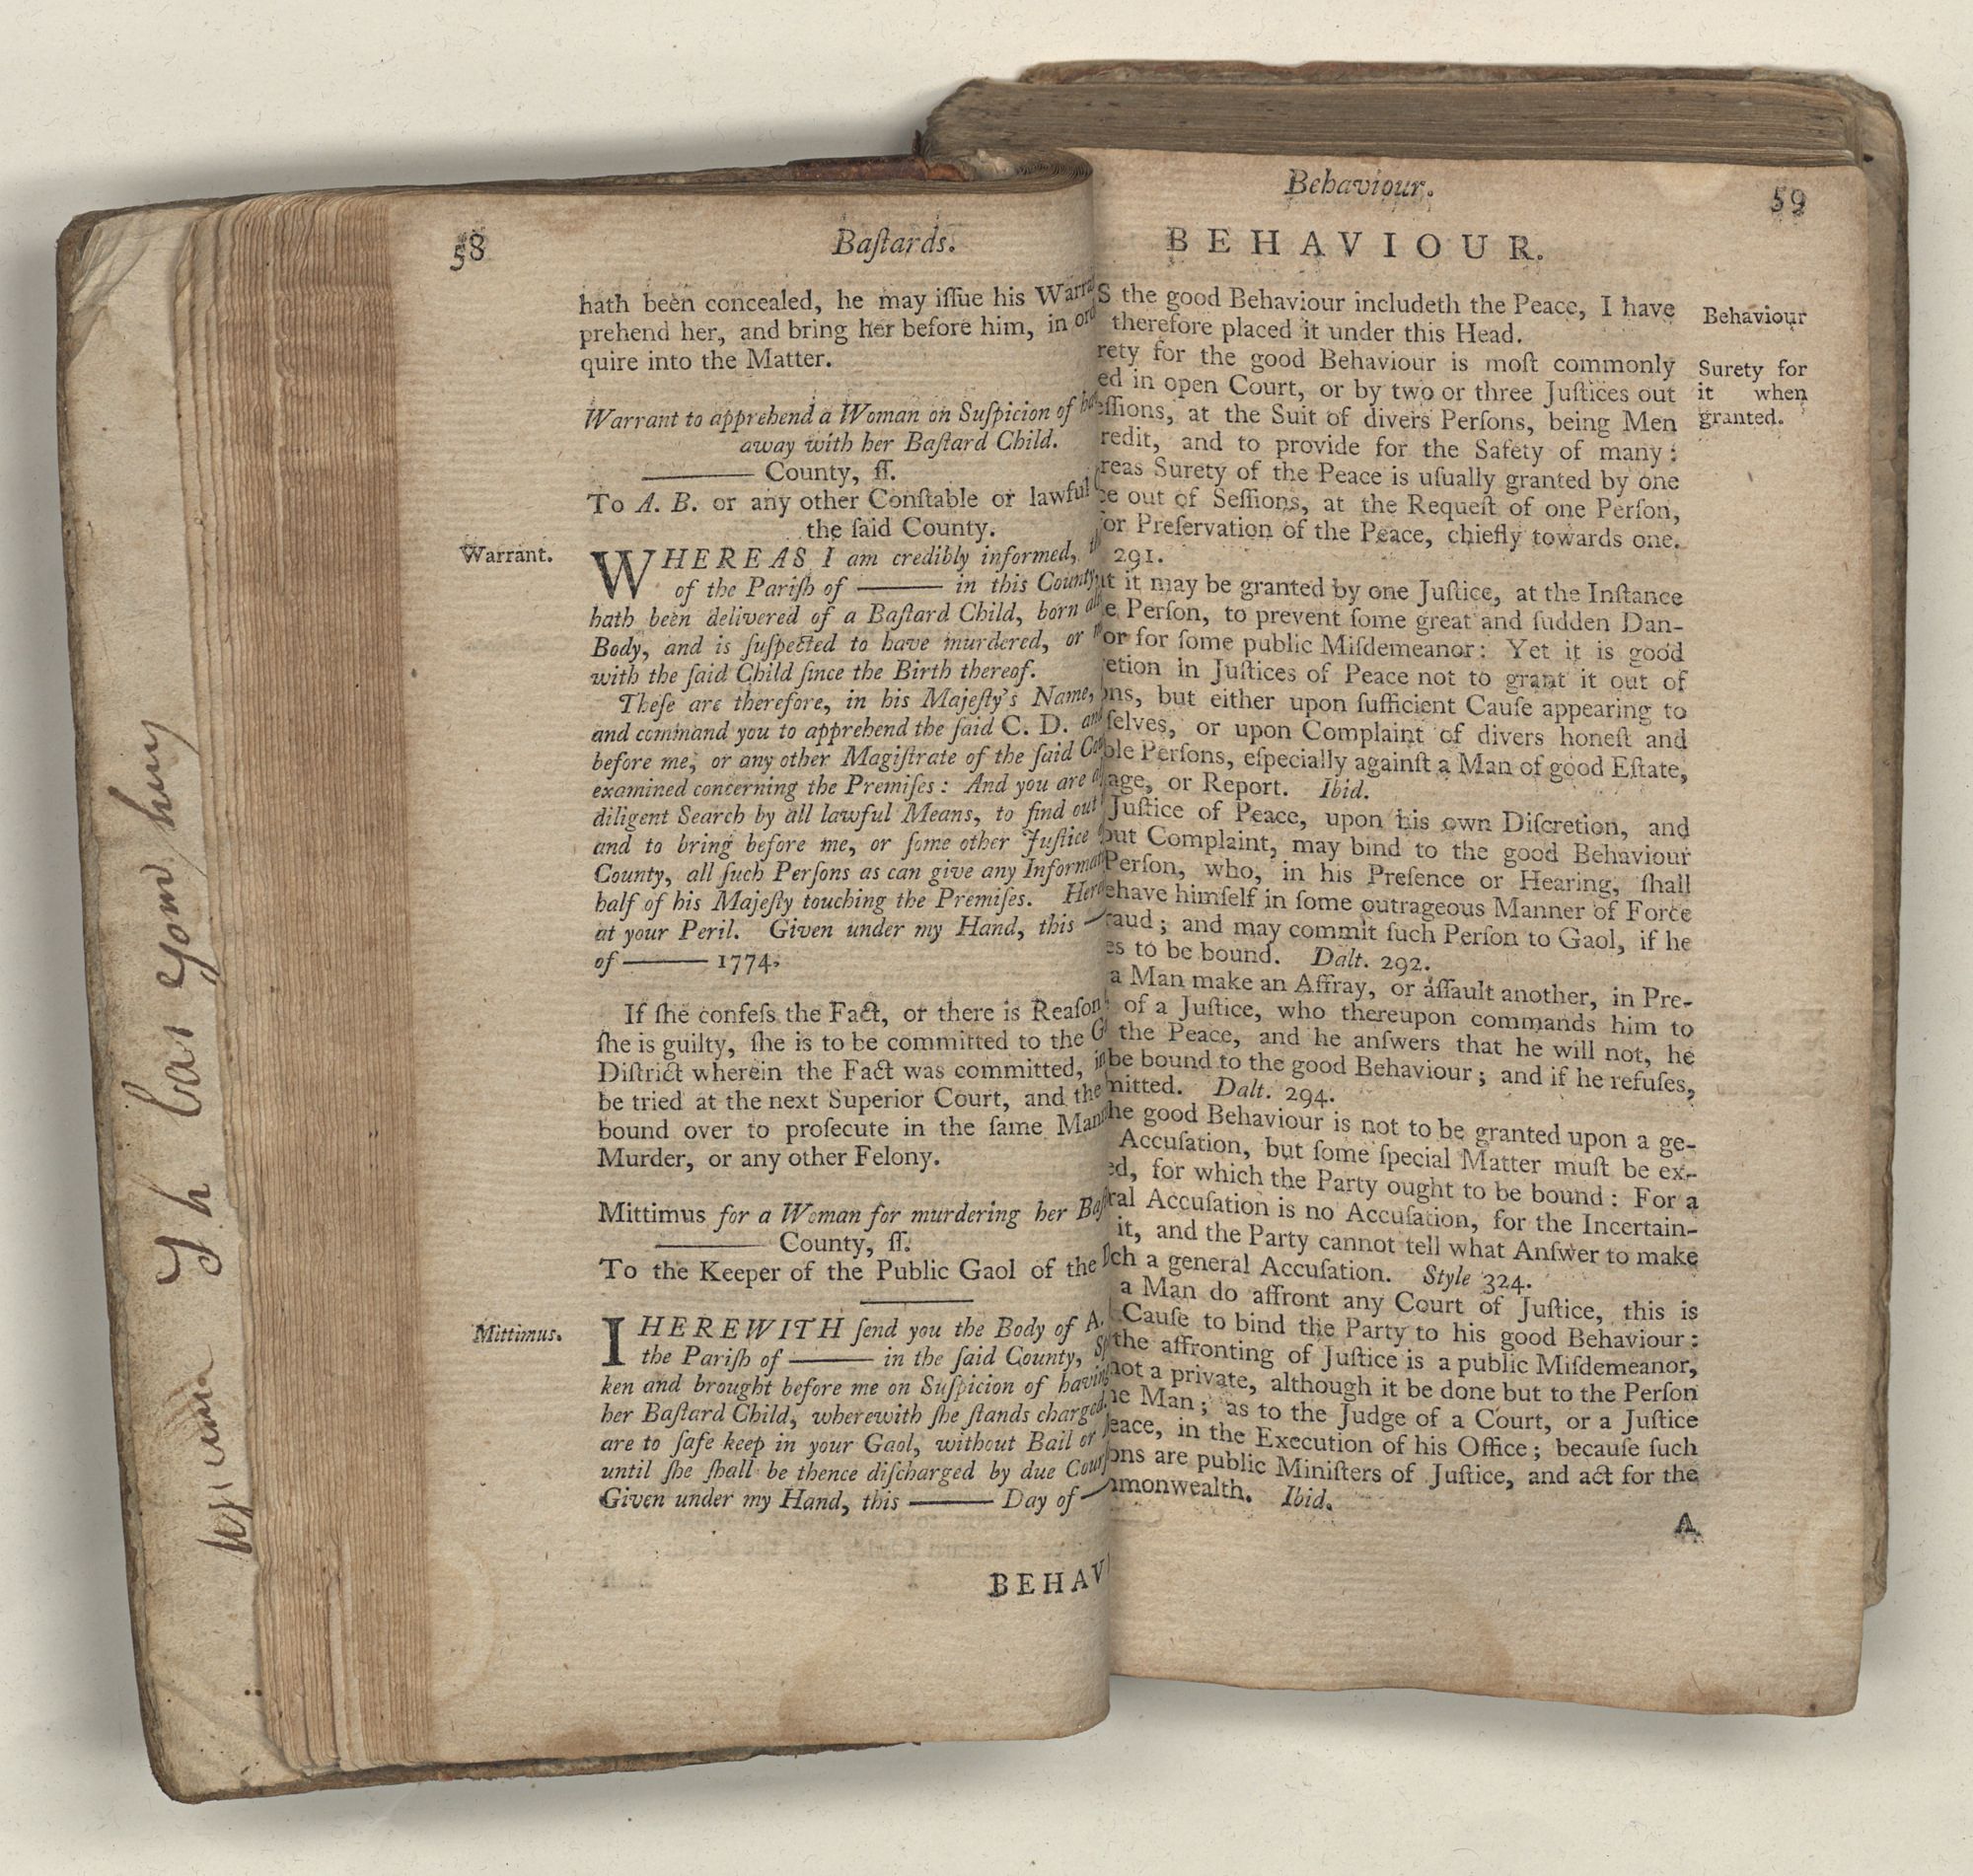 58
Baſtards.
hath been concealed, he may iſſue his
prehend her, and bring her before him, in
quire into the Matter.
Warrant to apprehend a Woman on Suſpicion of
away with her Baſtard Child.
——— County, ſſ.
To A. B. or any other Conſtable or lawful
the ſaid County.
Warrant.
WHEREAS I am credibly informed,
of the Pariſh of ——— in this County
hath been delivered of a Baſtard Child, born
Body, and is ſuſpected to have murdered, or
with the ſaid Child ſince the Birth thereof.
Theſe are therefore, in his Majeſty's Name,
and command you to apprehend the ſaid C. D.
before me, or any other Magiſtrate of the ſaid
examined concerning the Premiſes: And you are
diligent Search by all lawful Means, to find out
and to bring before me, or ſome other Juſtice
County, all ſuch Perſons as can give any
half of his Majeſty touching the Premiſes.
at your Peril. Given under my Hand, this —
of ——— 1774.
If ſhe confeſs the Fact, or there is Reaſon
ſhe is guilty, ſhe is to be committed to the
Diſtrict wherein the Fact was committed,
be tried at the next Superior Court, and the
bound over to proſecute in the ſame
Murder, or any other Felony.
Mittimus for a Woman for murdering her
——— County, ſſ.
To the Keeper of the Public Gaol of the
Mittimus.
I HEREWITH ſend you the Body of A.
the Pariſh of ——— in the ſaid County,
ken and brought before me on Suſpicion of having
her Baſtard Child, wherewith ſhe ſtands charged.
are to ſafe keep in your Gaol, without Bail or
until ſhe ſhall be thence diſcharged by due
Given under my Hand, this ——— Day of —
BEHAV
Behaviour.
59
BEHAVIOUR.
S the good Behaviour includeth the Peace, I have
therefore placed it under this Head.
Behaviour
rety for the good Behaviour is moſt commonly
ed in open Court, or by two or three Juſtices out
eſſions, at the Suit of divers Perſons, being Men
redit, and to provide for the Safety of many:
reas Surety of the Peace is uſually granted by one
ce out of Seſſions, at the Requeſt of one Perſon,
for Preſervation of the Peace, chiefly towards one.
291.
Surety for
it when
granted.
ut it may be granted by one Juſtice, at the Inſtance
e Perſon, to prevent ſome great and ſudden Dan-
or for ſome public Miſdemeanor: Yet it is good
retion in Juſtices of Peace not to grant it out of
ons, but either upon ſufficient Cauſe appearing to
ſelves, or upon Complaint of divers honeſt and
ble Perſons, eſpecially againſt a Man of good Eſtate,
age, or Report. Ibid.
Juſtice of Peace, upon his own Diſcretion, and
out Complaint, may bind to the good Behaviour
Perſon, who, in his Preſence or Hearing, ſhall
ehave himſelf in ſome outrageous Manner of Force
raud; and may commit ſuch Perſon to Gaol, if he
es to be bound. Dalt. 292.
a Man make an Affray, or aſſault another, in Pre-
of a Juſtice, who thereupon commands him to
the Peace, and he anſwers that he will not, he
be bound to the good Behaviour; and if he refuſes,
mitted. Dalt. 294.
he good Behaviour is not to be granted upon a ge-
Accuſation, but ſome ſpecial Matter muſt be ex-
ed, for which the Party ought to be bound: For a
ral Accuſation is no Accuſation, for the Incertain-
it, and the Party cannot tell what Anſwer to make
ch a general Accuſation. Style 324.
a Man do affront any Court of Juſtice, this is
Cauſe to bind the Party to his good Behaviour:
the affronting of Juſtice is a public Miſdemeanor,
not a private, although it be done but to the Perſon
ne Man; as to the Judge of a Court, or a Juſtice
Peace, in the Execution of his Office; becauſe ſuch
ons are public Miniſters of Juſtice, and act for the
mmonwealth. Ibid.
A